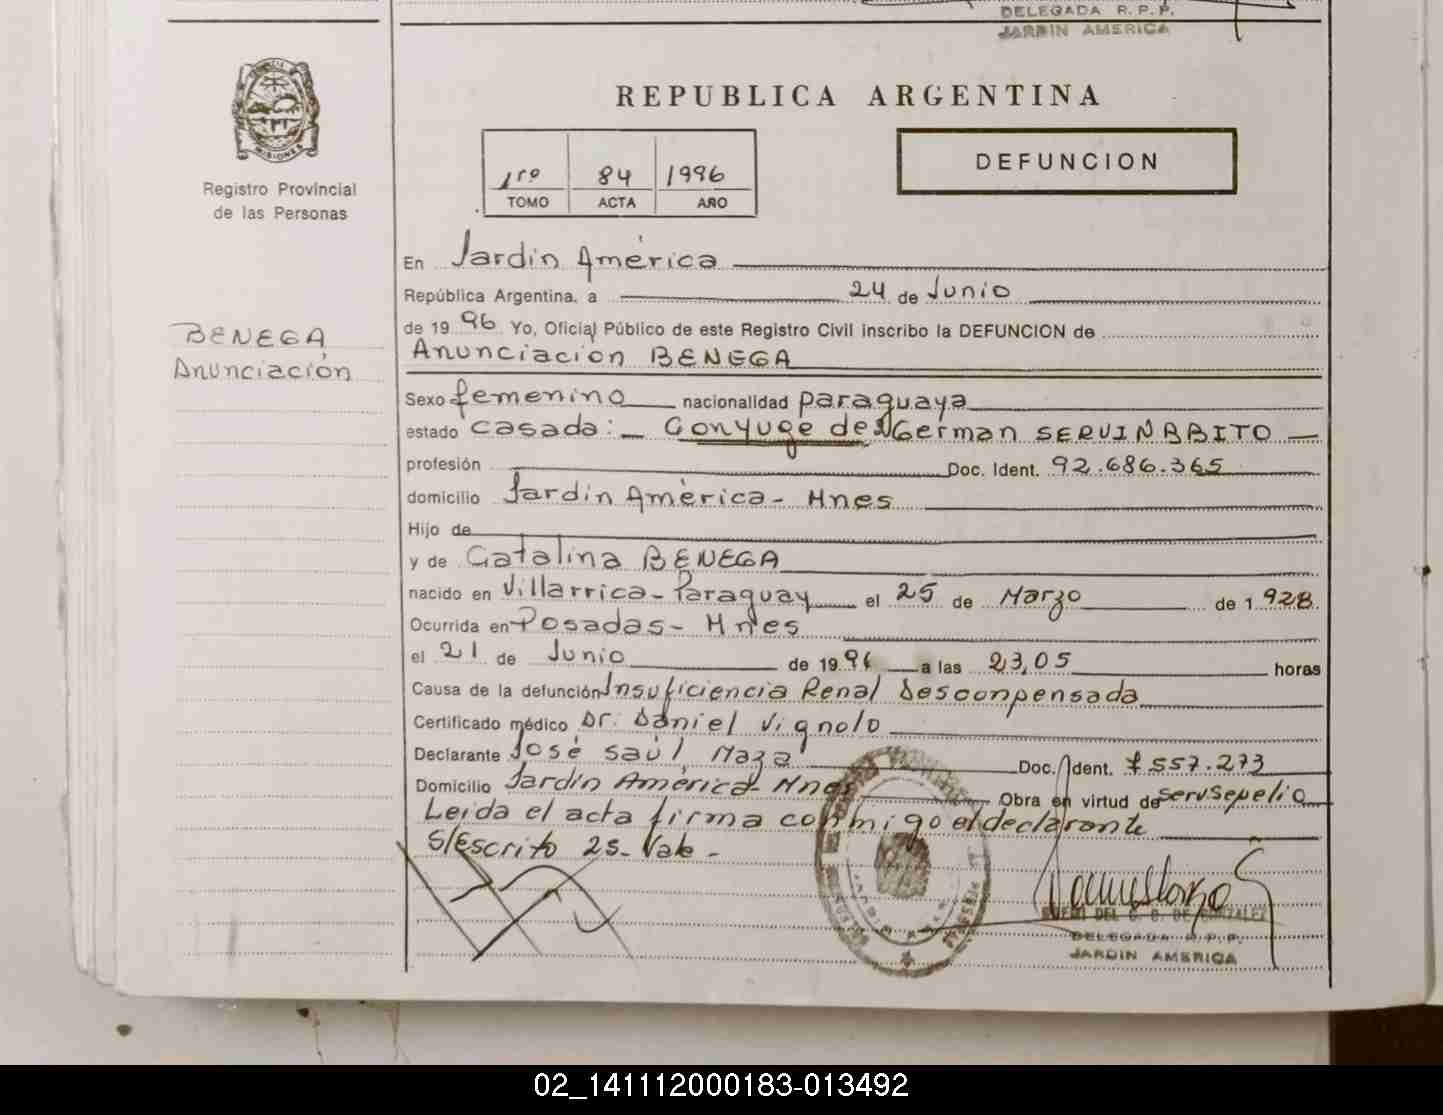 DELEGADA R.P.P.
JARDIN AMERICA
REPUBLICA ARGENTINA
DEFUNCION
1ro 84 1996
TOMO ACTA AÑO
MISIONES
Registro Provincial
de las Personas
En Jardín América
República Argentina, a 24 de Junio
de 1996 Yo, Oficial Público de este Registro Civil inscribo la DEFUNCION de
Anunciación BENEGA
BENEGA
Anunciación
Sexo femenino nacionalidad paraguaya
estado casada: Conyuge de German
profesión Doc. Ident. 92.686.365
domicilio Jardín América - Mnes
Hijo de
y de Catalina BENEGA
nacido en Villarrica - Paraguay el 25 de Marzo de 1.928
Ocurrida en Posadas - Mnes
el 21 de Junio de 1996 a las 23,05 horas
Causa de la defunción Insuficiencia Renal Desconpensada
Certificado médico Dr. Daniel Vignolo
Declarante José Saúl Maza Doc. Ident. 7.557.273
Domicilio Jardín América - Mnes Obra en virtud de servsepelio
Leida el acta firma conmigo el declarante
S/Escrito 25 - Vale -
DEL C. B. DE GONZALEZ
DELEGADA R.P.P.
JARDIN AMERICA
02_141112000183-013492